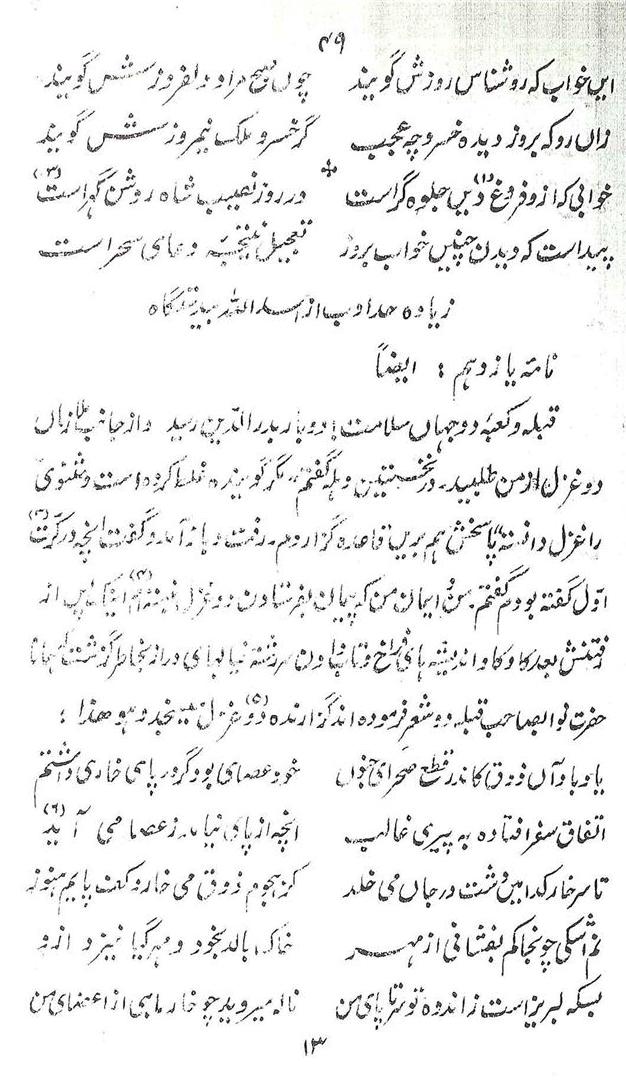 ۴۹
این خواب که روشناس روزش گویند چون صبح مراد دلفروزش گویند
زان رو که بروز دیده خسرو چه عجب گر خسرو ملک نیمروزش گویند
خوابی که ازو فروغ (۱) دین جلوه گر است در روز نصیب شاه روشن گهر است (۳)
پیداست که دیدن چنین خواب بروز تعجیل نتیجهٔ دعای سحر است
زیاده حد ادب از اسد الله بیدستگاه
نامهٔ یازدهم : ایضاً
قبله و کعبهٔ دو جهان سلامت! دوبار بدرالدین رسید و از جانب ملازمان
دو غزل از من طلبید۔ در نخستین وهله گفتم مگر گوینده غلط کرده است و مثنوی
را غزل دانسته پاسخش هم برین قاعده گزاردم۔ رفت و باز آمد و گفت انچه در کرّت (۳)
اوّل گفته بودم گفتم من و ایمان من که پیمان بفرستادن دو غزل نبسته ام (۴) پس از
رفتنش بعد کاو کاو اندیشه های فراخ و تاب دادن سر رشتهٔ خیالهای دراز بخاطر گزشت همانا
حضرت نواب صاحب قبله دو شعر فرموده اند گزارنده دو (۵) غزل میسنجد و هو هذا :
یاد باد آن ذوق کاندر قطع صحرای جنون خود عصای بود گر در پای خاری داشتم
اتفاق سفر افتاده به پیری غالب انچه از پای نیامد ز عصا می آید (۶)
تا سر خار کدامین دشت در جان می خلد کز هجوم ذوق می خارد کف پایم هنوز
نم اشکی چو بخاکم بفشانی از مهر خاک بالد بخود و مهر گیا خیزد ازو
بسکه لبریز است ز اندوه تو سرتا پای من ناله میروید چو خار ماهی از اعضای من
۱۳